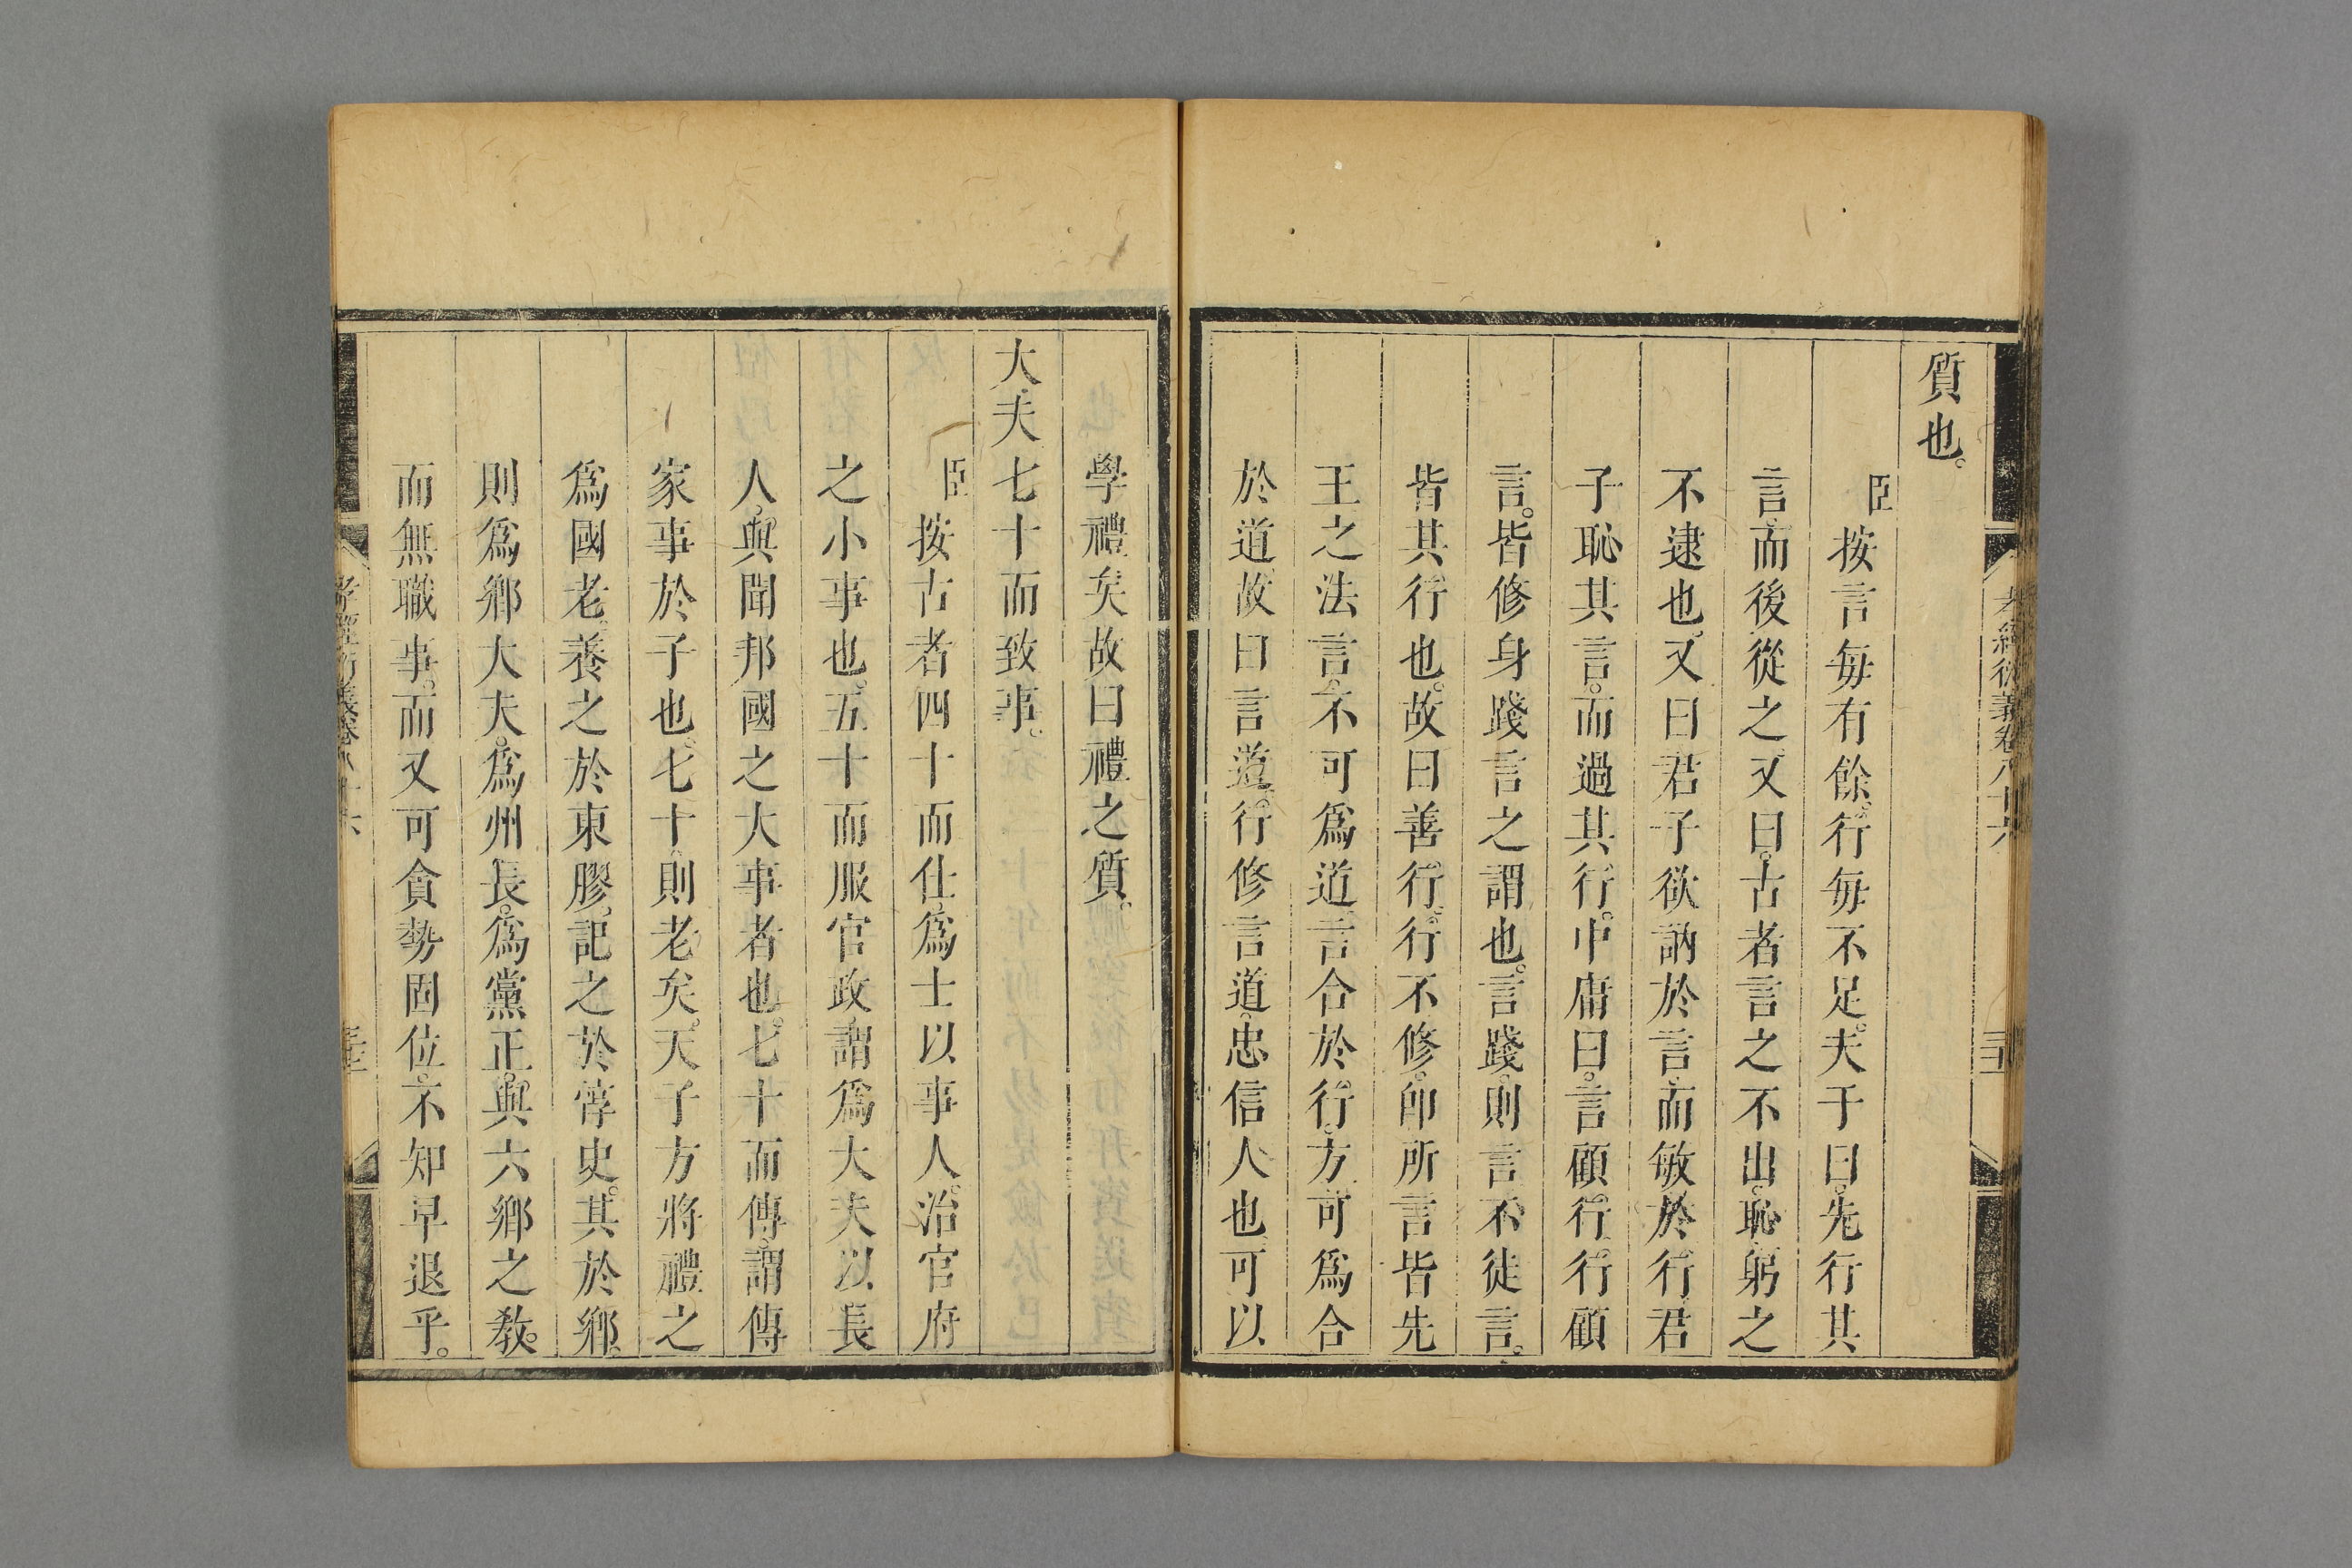 質也。
臣按言每有餘。行每不足。夫子曰。先行其
言。而後從之。又曰。古者言之不出。恥躬之
不逮也。又曰君子欲訥於言。而敏於行。君
子恥其言。而過其行。中庸曰。言顧行。行顧
言。皆修身踐言之謂也。言踐。則言不徒言。
皆其行也。故曰善行。行不修。卽所言皆先
王之法言。不可爲道。言合於行。方可爲合
於道。故曰言道。行修言道。忠信人也可以
學禮矣故曰禮之質。
大夫七十而致事。
臣按古者四十而仕。爲士以事人。治官府
之小事也。五十而服官政。謂爲大夫以長
人。與聞邦國之大事者也。七十而傳。謂傳
家事於子也。七十則老矣。天子方將禮之
爲國老。養之於東膠。記之於惇史。其於鄉。
則爲鄉大夫。爲州長。爲黨正。與六鄉之教。
而無職事。而又可貪勢固位。不知早退乎。
孝經衍義卷八十六